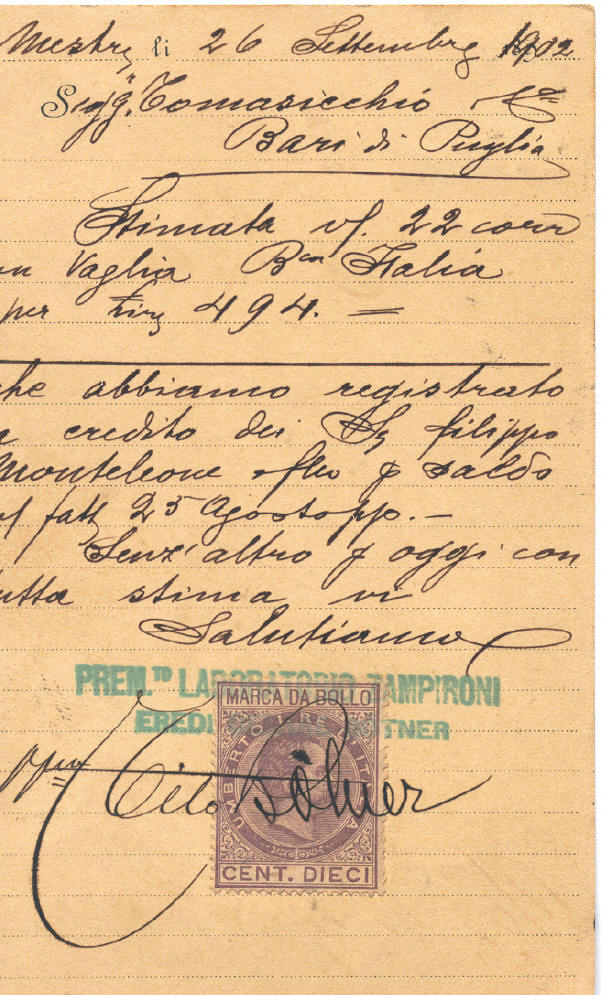 Mestre li 26 Settembre 1902
Sigg. Tomasicchio & Co
Bari di Puglia
Stimata vs. 22 corr
Vaglia Bca Italia
per Lire 494. =
che abbiamo registrato
a credito dei Sig filippo
Monteleone saldo
fatt 25 Agosto pp. -
Senz'altro p oggi con
tutta stima vi
Salutiamo
PREM.TO LABORATORIO ZAMPIRONI
EREDI
MARCA DA BOLLO
UMBERTO I RE D'ITALIA
ppa
CENT. DIECI